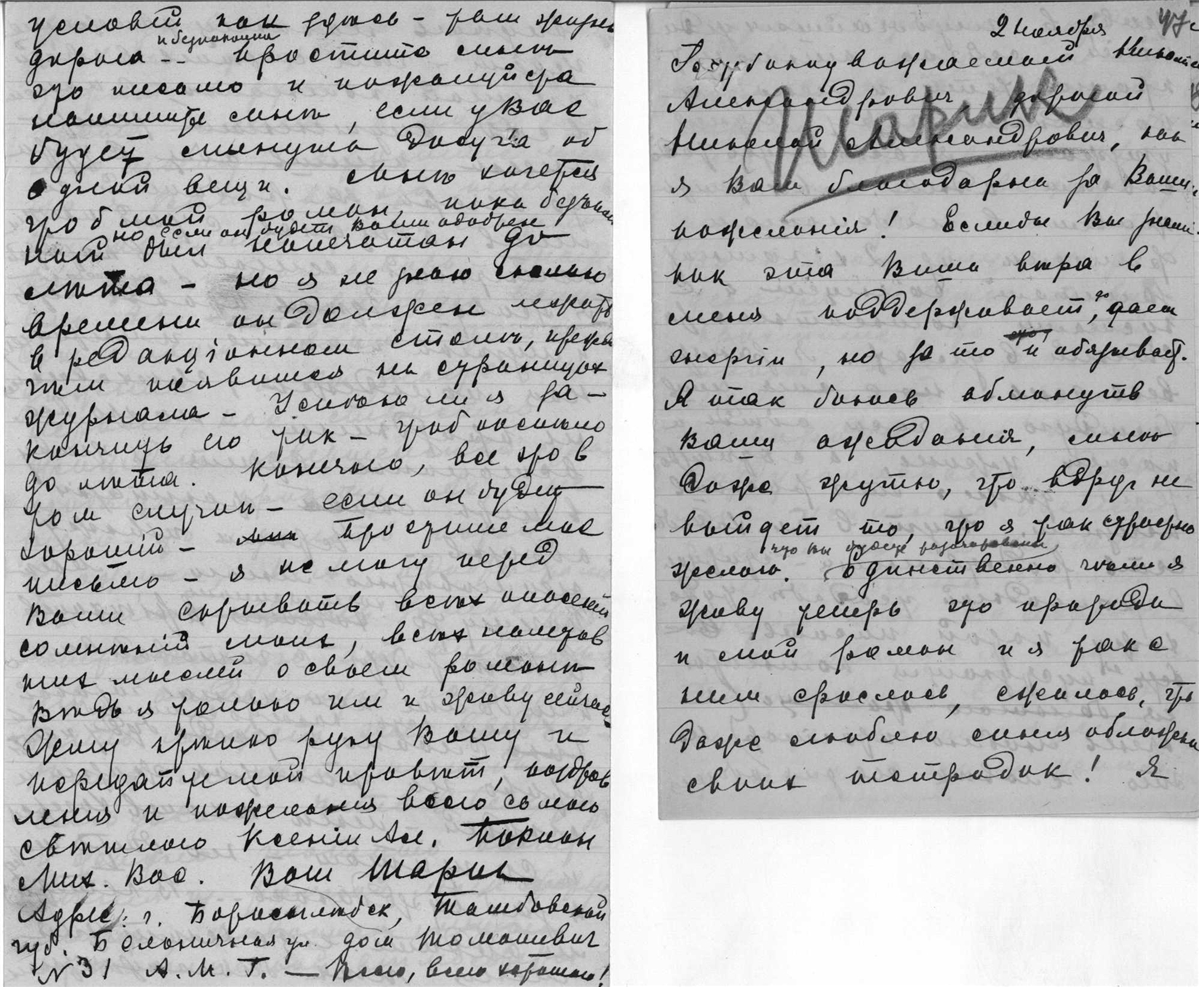 условій как здесь – раш жизнь
дорога -- и безпокойна простите мнѣ
это письмо и пожалуйста
напишите мнѣ, если у Вас
будет минута досуга об
одной вещи. Мнѣ хочется
чтоб мой роман, пока безъимен
ный но если он будет Вами одобрен был напечатан до
лѣта – но я не знаю сколько
времени он должен лежать
в редакціонном столѣ, прежде
чѣм появится на страницах
журнала – Успѣю ли я за-
кончить его так – чтоб
до лѣта. Конечно, все это в
том случаѣ – если он будет
хорошій – Простите мое
письмо – я не могу перед
Вами скрывать всѣх опасеній
сомнѣній моих, всѣх
них мыслей о своем романѣ
Вѣдь я только им и живу сейчас
Жму крѣпко руку Вашу и
передайте мой привѣт, поздрав
ленія и пожеланія всего самого
свѣтлаго Ксеніи Ал. Поклон
Мих. Вас. Ваш Шарик
Адрес: г. Борисоглѣбск, Тамбовской
губ. ул. дом Томашевич
№ 31 А. М. Г. – Всего, всего хорошаго!
47
2 ноября
Глубокоуважаемый Николай
Александрович дорогой
Шарик
Николай Александрович, как
я Вам благодарна за Ваши
пожеланія! Если бы Вы знали
как эта Ваша вѣра в
меня поддерживает, дает
энергіи, но за то и обязывает.
Я так боюсь обмануть
Ваши ожиданія, мнѣ
даже жутко, что вдруг не
выйдет то, что я так страстно
желаю. что Вы будете разочарованы Единственно чѣм я
живу теперь это природа
и мой роман и я так с
ним срослась, сжилась, что
даже люблю синія обложки
своих тетрадок! Я